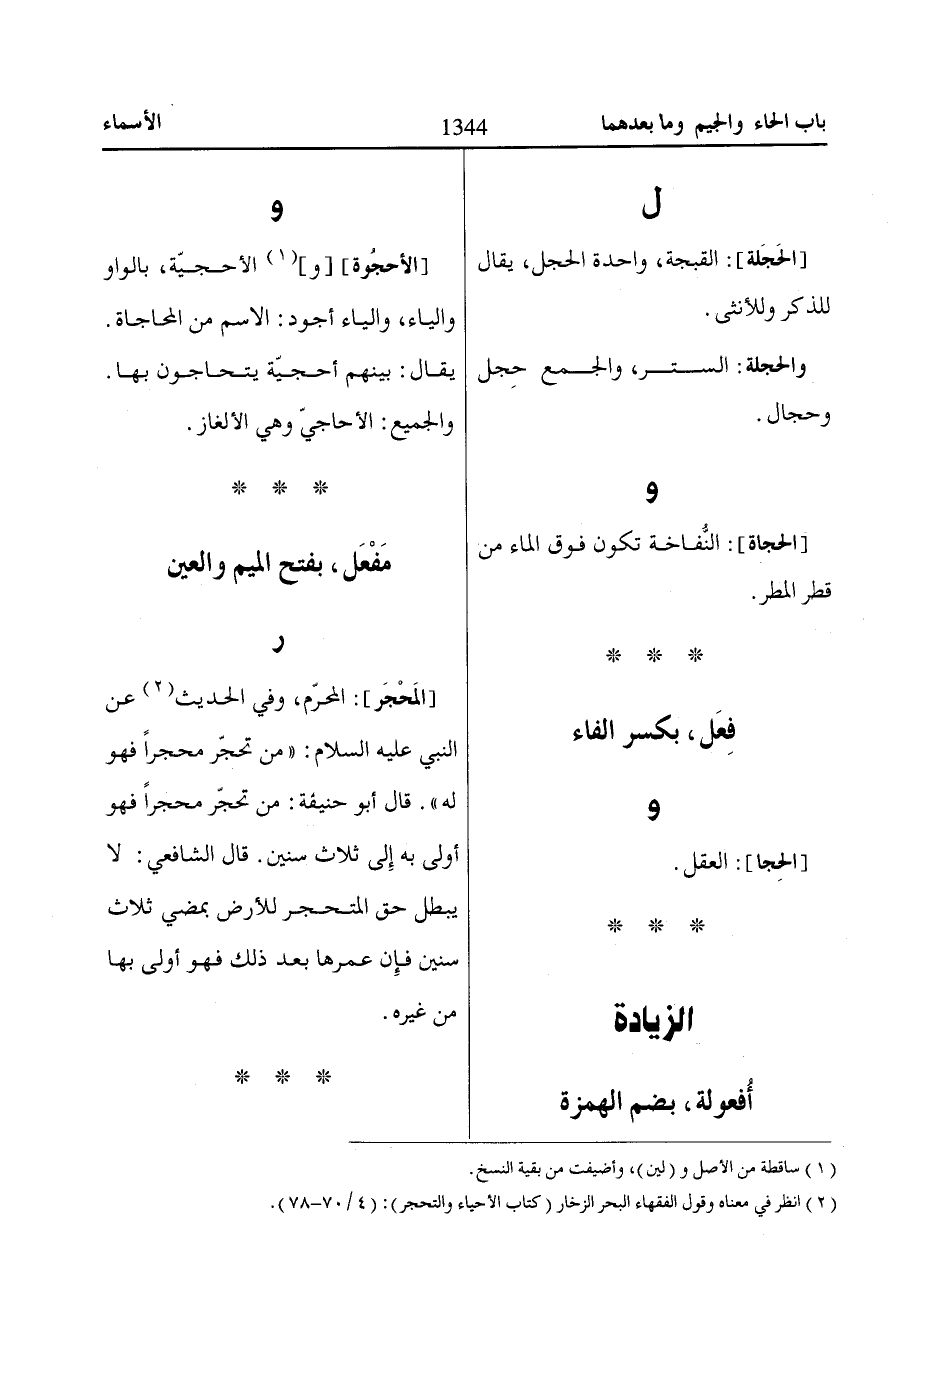 باب الحاء والجيم وما بعدهما 1344 الأسماء
ل
[الحَجَلة]: القبجة، واحدة الحجل، يقال
للذكر وللأنثى.
والحجلة: الستر، والجمع حِجل
وحجال.
و
[الحجاة]: النُّفاخة تكون فوق الماء من
قطر المطر.
* * *
فِعَل، بكسر الفاء
و
[الحِجا]: العقل.
* * *
الزيادة
أُفعولة، بضم الهمزة
و
[الأحجُوة] [و](١) الأحجيّة، بالواو
والياء، والياء أجود: الاسم من المحاجاة.
يقال: بينهم أحجيّة يتحاجون بها.
والجميع: الأحاجيّ وهي الألغاز.
* * *
مَفْعَل، بفتح الميم والعين
ر
[المَحْجَر]: المحرّم، وفي الحديث(٢) عن
النبي عليه السلام: «من تحجّر محجراً فهو
له». قال أبو حنيفة: من تحجّر محجراً فهو
أولى به إلى ثلاث سنين. قال الشافعي: لا
يبطل حق المتحجر للأرض بمضي ثلاث
سنين فإن عمرها بعد ذلك فهو أولى بها
من غيره.
* * *
(١) ساقطة من الأصل و (لين)، وأضيفت من بقية النسخ.
(٢) انظر في معناه وقول الفقهاء البحر الزخار (كتاب الأحياء والتحجر): (٤/٧٠-٧٨).